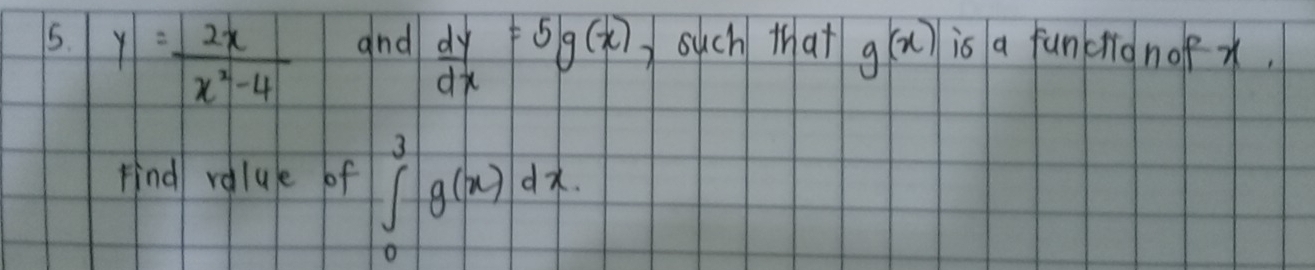 5. y = 2x / (x² - 4) and dy/dx = 5g(x), such that g(x) is a function of x.
Find value of ∫₀³ g(x) dx.